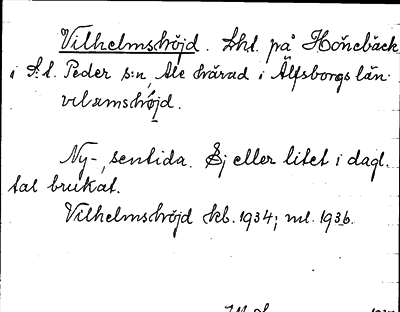 Vilhelmshöjd. Lht. på Hönebäck
i S:t. Peder s:n, Ale härad i Älfsborgs län.
vilamshöjd.
Ny-, sentida. Ej eller litet i dagl.
tal brukat.
Vilhelmshöjd kb. 1934; ml. 1936.